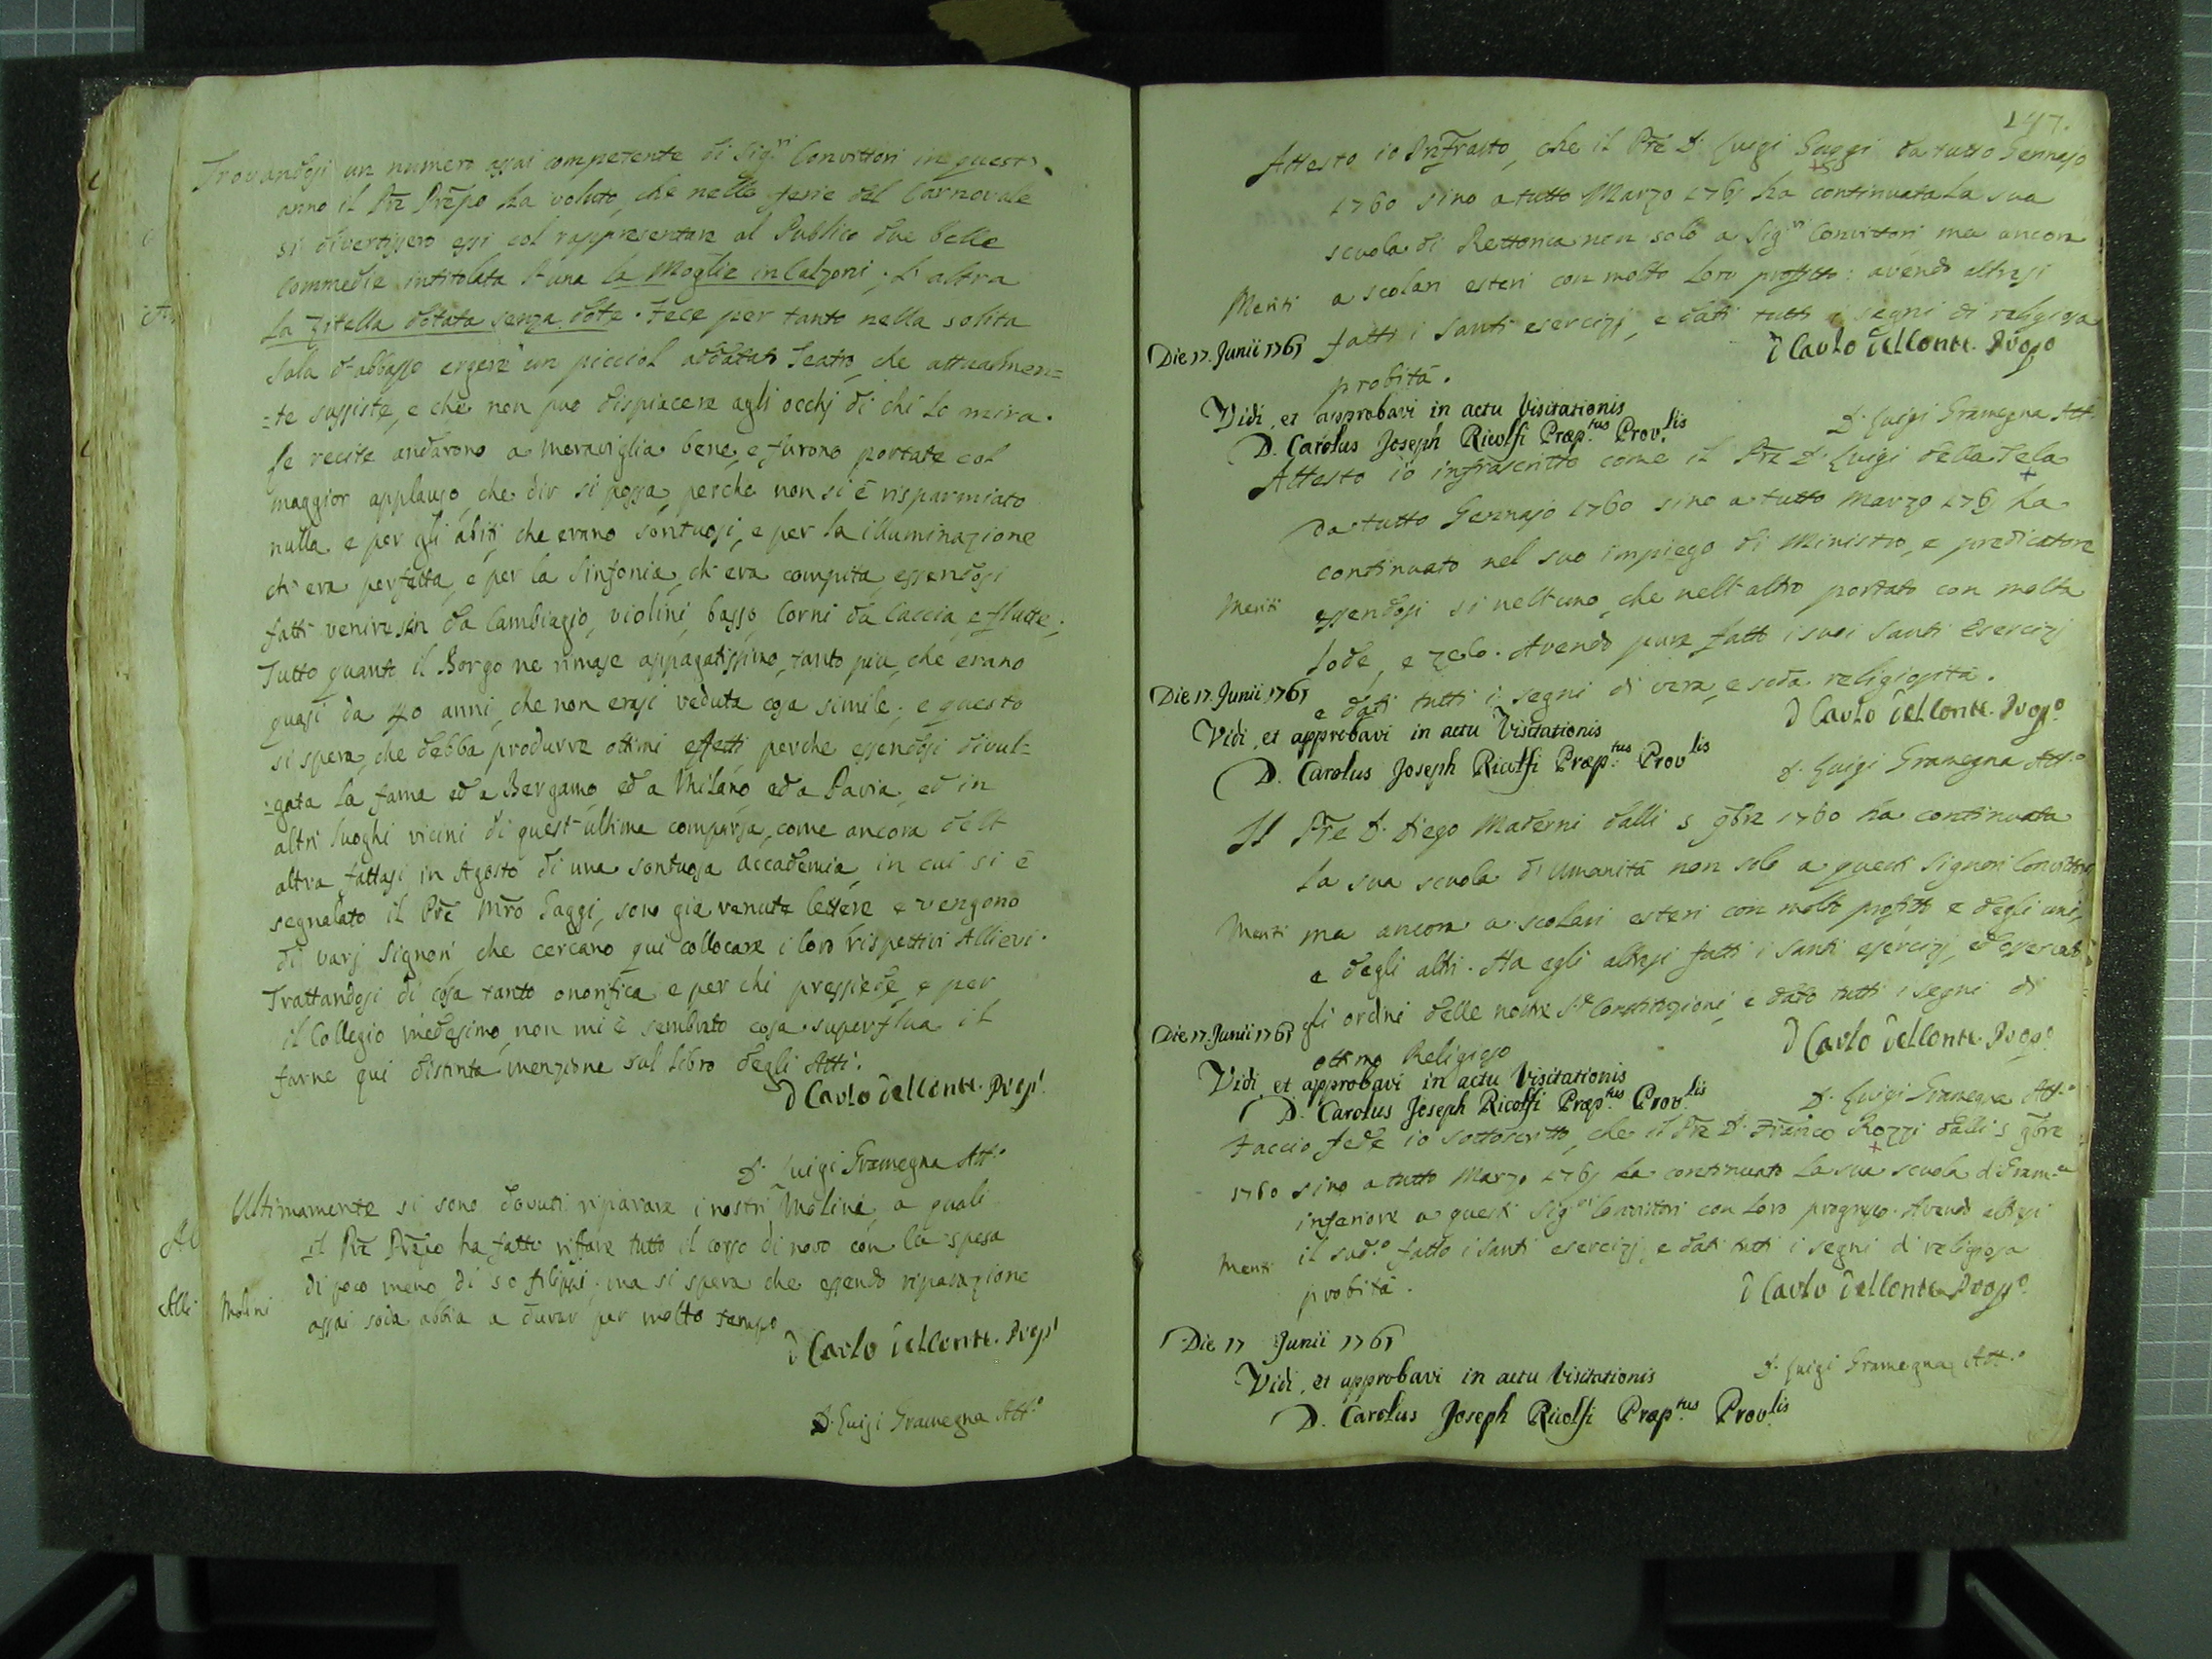 Trovandosi un numero assai competente di Sig.ri Convittori in quest'
anno il Pre Prepo ha voluto, che nelle ferie del Carnovale
si divertissero essi col rappresentare al Publico due belle
Commedie intitolata l'una la Moglie in Calzoni; l'altra
La Zitella dotata senza dote. Fece per tanto nella solita
Sala d'abbasso ergere un picciol addatato Teatro, che attualmen=
=te sussiste, e che non puo dispiacere agli occhj di chi lo mira.
Le recite andarono a meraviglia bene, e furono portate col
maggior applauso, che dir si possa, perche non si è risparmiato
nulla e per gli abiti, che erano sontuosi, e per la illuminazione
ch'era perfetta, e per la Sinfonia, ch'era compita, essendosi
fatti venire sin da Cambiagio, violini, basso, Corni da Caccia, e flutte;
Tutto quanto il Borgo ne rimase appagatissimo, tanto piu, che erano
quasi da 40 anni, che non erasi veduta cosa simile; e questo
si spera, che debba produrre ottimi effetti, perche essendosi divul=
=gata la fama ed a Bergamo, ed a Milano, ed a Pavia, ed in
altri luoghi vicini di quest'ultima comparsa, come ancora dell'
altra fattasi in Agosto di una sontuosa Accademia, in cui si è
segnalato il Pre Mro Gaggi, sono gia venute lettere e vengono
di varj Signori che cercano qui collocare i loro rispettivi Allievi.
Trattandosi di cosa tanto onorifica e per chi pressiede, e per
il Collegio medesimo, non mi è sembrato cosa superflua il
farne qui distinta menzione sul libro degli Atti.
D Carlo del Conte. Prep.
D. Luigi Gramegna Att.o
Ultimamente si sono dovuti riparare i nostri Molini, a quali
il Pre Prepo ha fatto rifare tutto il corso di novo con la spesa
di poco meno di 50 filippi; ma si spera che essendo riparazione
Molini assai soda abbia a durar per molto tempo
D Carlo del Conte. Prep.
D. Luigi Gramegna Att.o
147.
Attesto io Infratto, che il Pre D. Luigi Gaggi da tutto Gennajo
1760 sino a tutto Marzo 1761 ha continuata la sua
scuola di Rettorica non solo a Sig.ri Convittori ma ancora
Meriti a scolari esteri con molto loro profitto: avendo altresi
fatti i Santi esercizj, e dati tutti i segni di religiosa
probità.
D Carlo del Conte. Prepo
Die 17. Junii 1761
Vidi, et approbavi in actu Visitationis
D. Carolus Joseph Ricolfi Præp.tus Prov.lis
D. Luigi Gramegna Att.
Attesto io infrascritto come il Pre D. Luigi della Tela
da tutto Gennajo 1760 sino a tutto Marzo 1761 ha
continuato nel suo impiego di Ministro, e predicatore
Meriti essendosi si nell'uno, che nell'altro portato con molta
lode, e zelo. Avendo pure fatti i suoi Santi Esercizj
e dati tutti i segni di vera, e soda religiosità.
D Carlo del Conte. Prepo
Die 17. Junii 1761
Vidi, et approbavi in actu Visitationis
D. Carolus Joseph Ricolfi Præp.tus Prov.lis
D. Luigi Gramegna Att.o
Il Pre D. Diego Maderni dalli 5 9bre 1760 ha continuata
la sua scuola d'Umanità non solo a questi Signori Convittori
Meriti ma ancora a scolari esteri con molto profitto e degli uni,
e degli altri. Ha egli altresi fatti i Santi esercizj,
gli ordini delle nostre S.te Constituzioni, e dato tutti i segni di
ottimo Religioso
D Carlo del Conte. Prepo
Die 17. Junii 1761
Vidi, et approbavi in actu Visitationis
D. Carolus Joseph Ricolfi Præp.tus Prov.lis
D. Luigi Gramegna Att.o
Faccio fede io sottoscritto, che il Pre D. Franco Rozzi dalli 5 9bre
1760 sino a tutto Marzo 1761 ha continuato la sua scuola di Gram.a
inferiore a questi Sig.ri Convittori con loro progresso. Avendo altresi
Meriti il sud.o fatto i Santi esercizj, e dati tutti i segni di religiosa
probità.
D Carlo del Conte Prepo
Die 17 Junii 1761
Vidi, et approbavi in actu Visitationis
D. Carolus Joseph Ricolfi Præp.tus Prov.lis
D. Luigi Gramegna Att.o